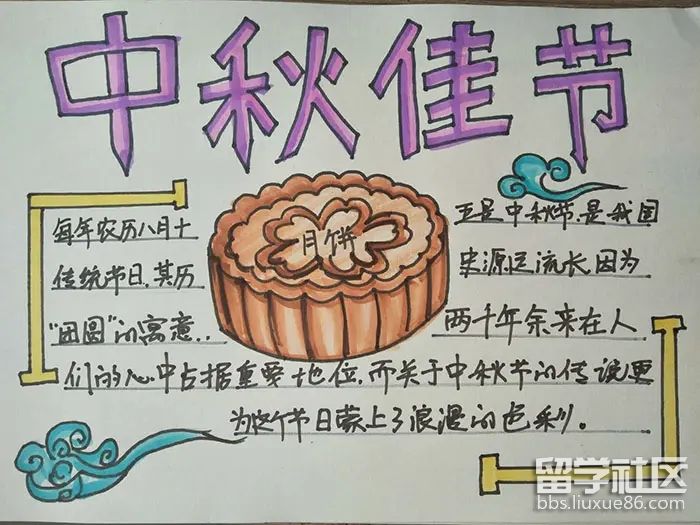 中秋佳节
月饼
每年农历八月十 五是中秋节,是我国
传统节日,其历 史源远流长,因为
“团圆”的寓意.. 两千年余来在人
们的心中占据重要地位,而关于中秋节的传说更
为这个节日蒙上了浪漫的色彩。
留学社区
bbs.liuxue86.com